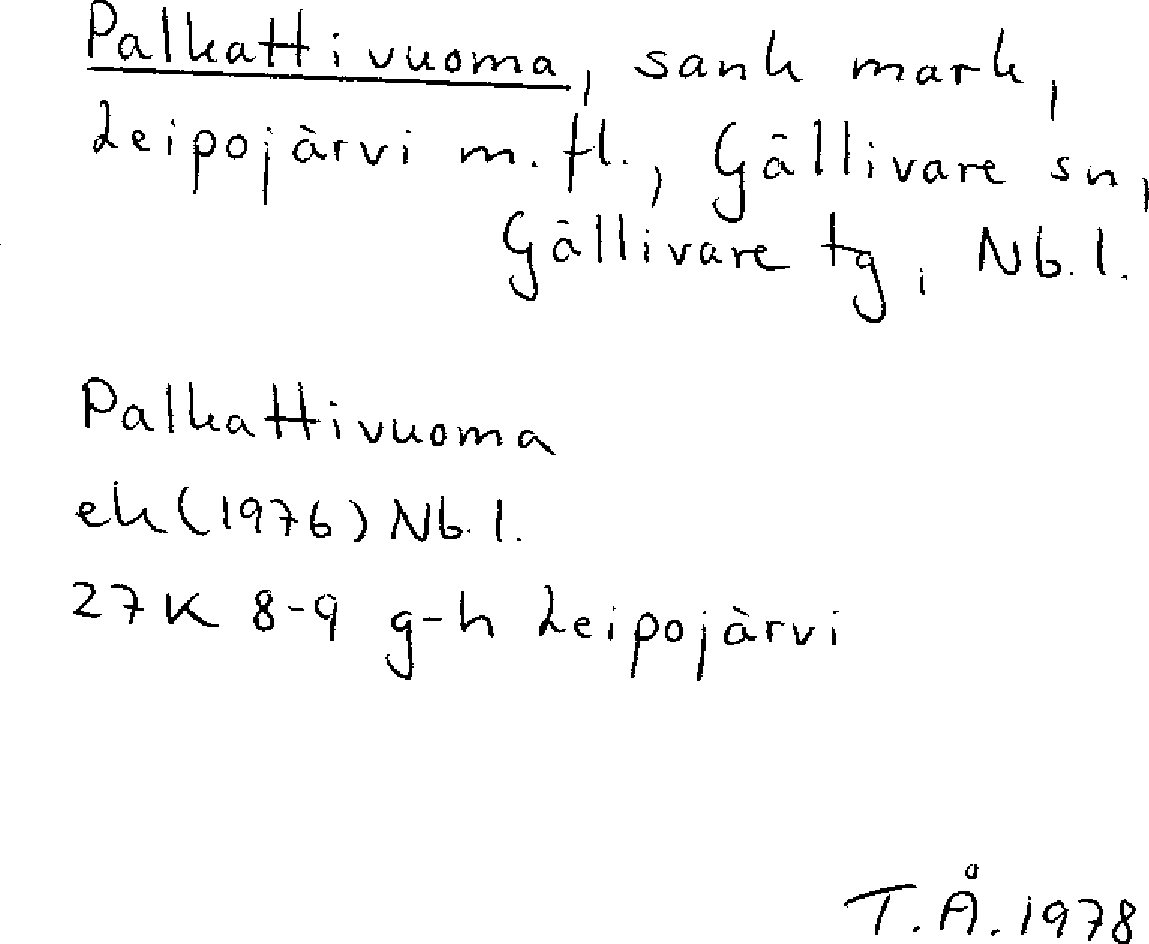 Palkattivuoma, sank mark,
Leipojärvi m. fl., Gällivare sn,
Gällivare tg, Nb. l.
Palkattivuoma
ek (1976) Nb. l.
27K 8-9 g-h Leipojärvi
T.Å. 1978